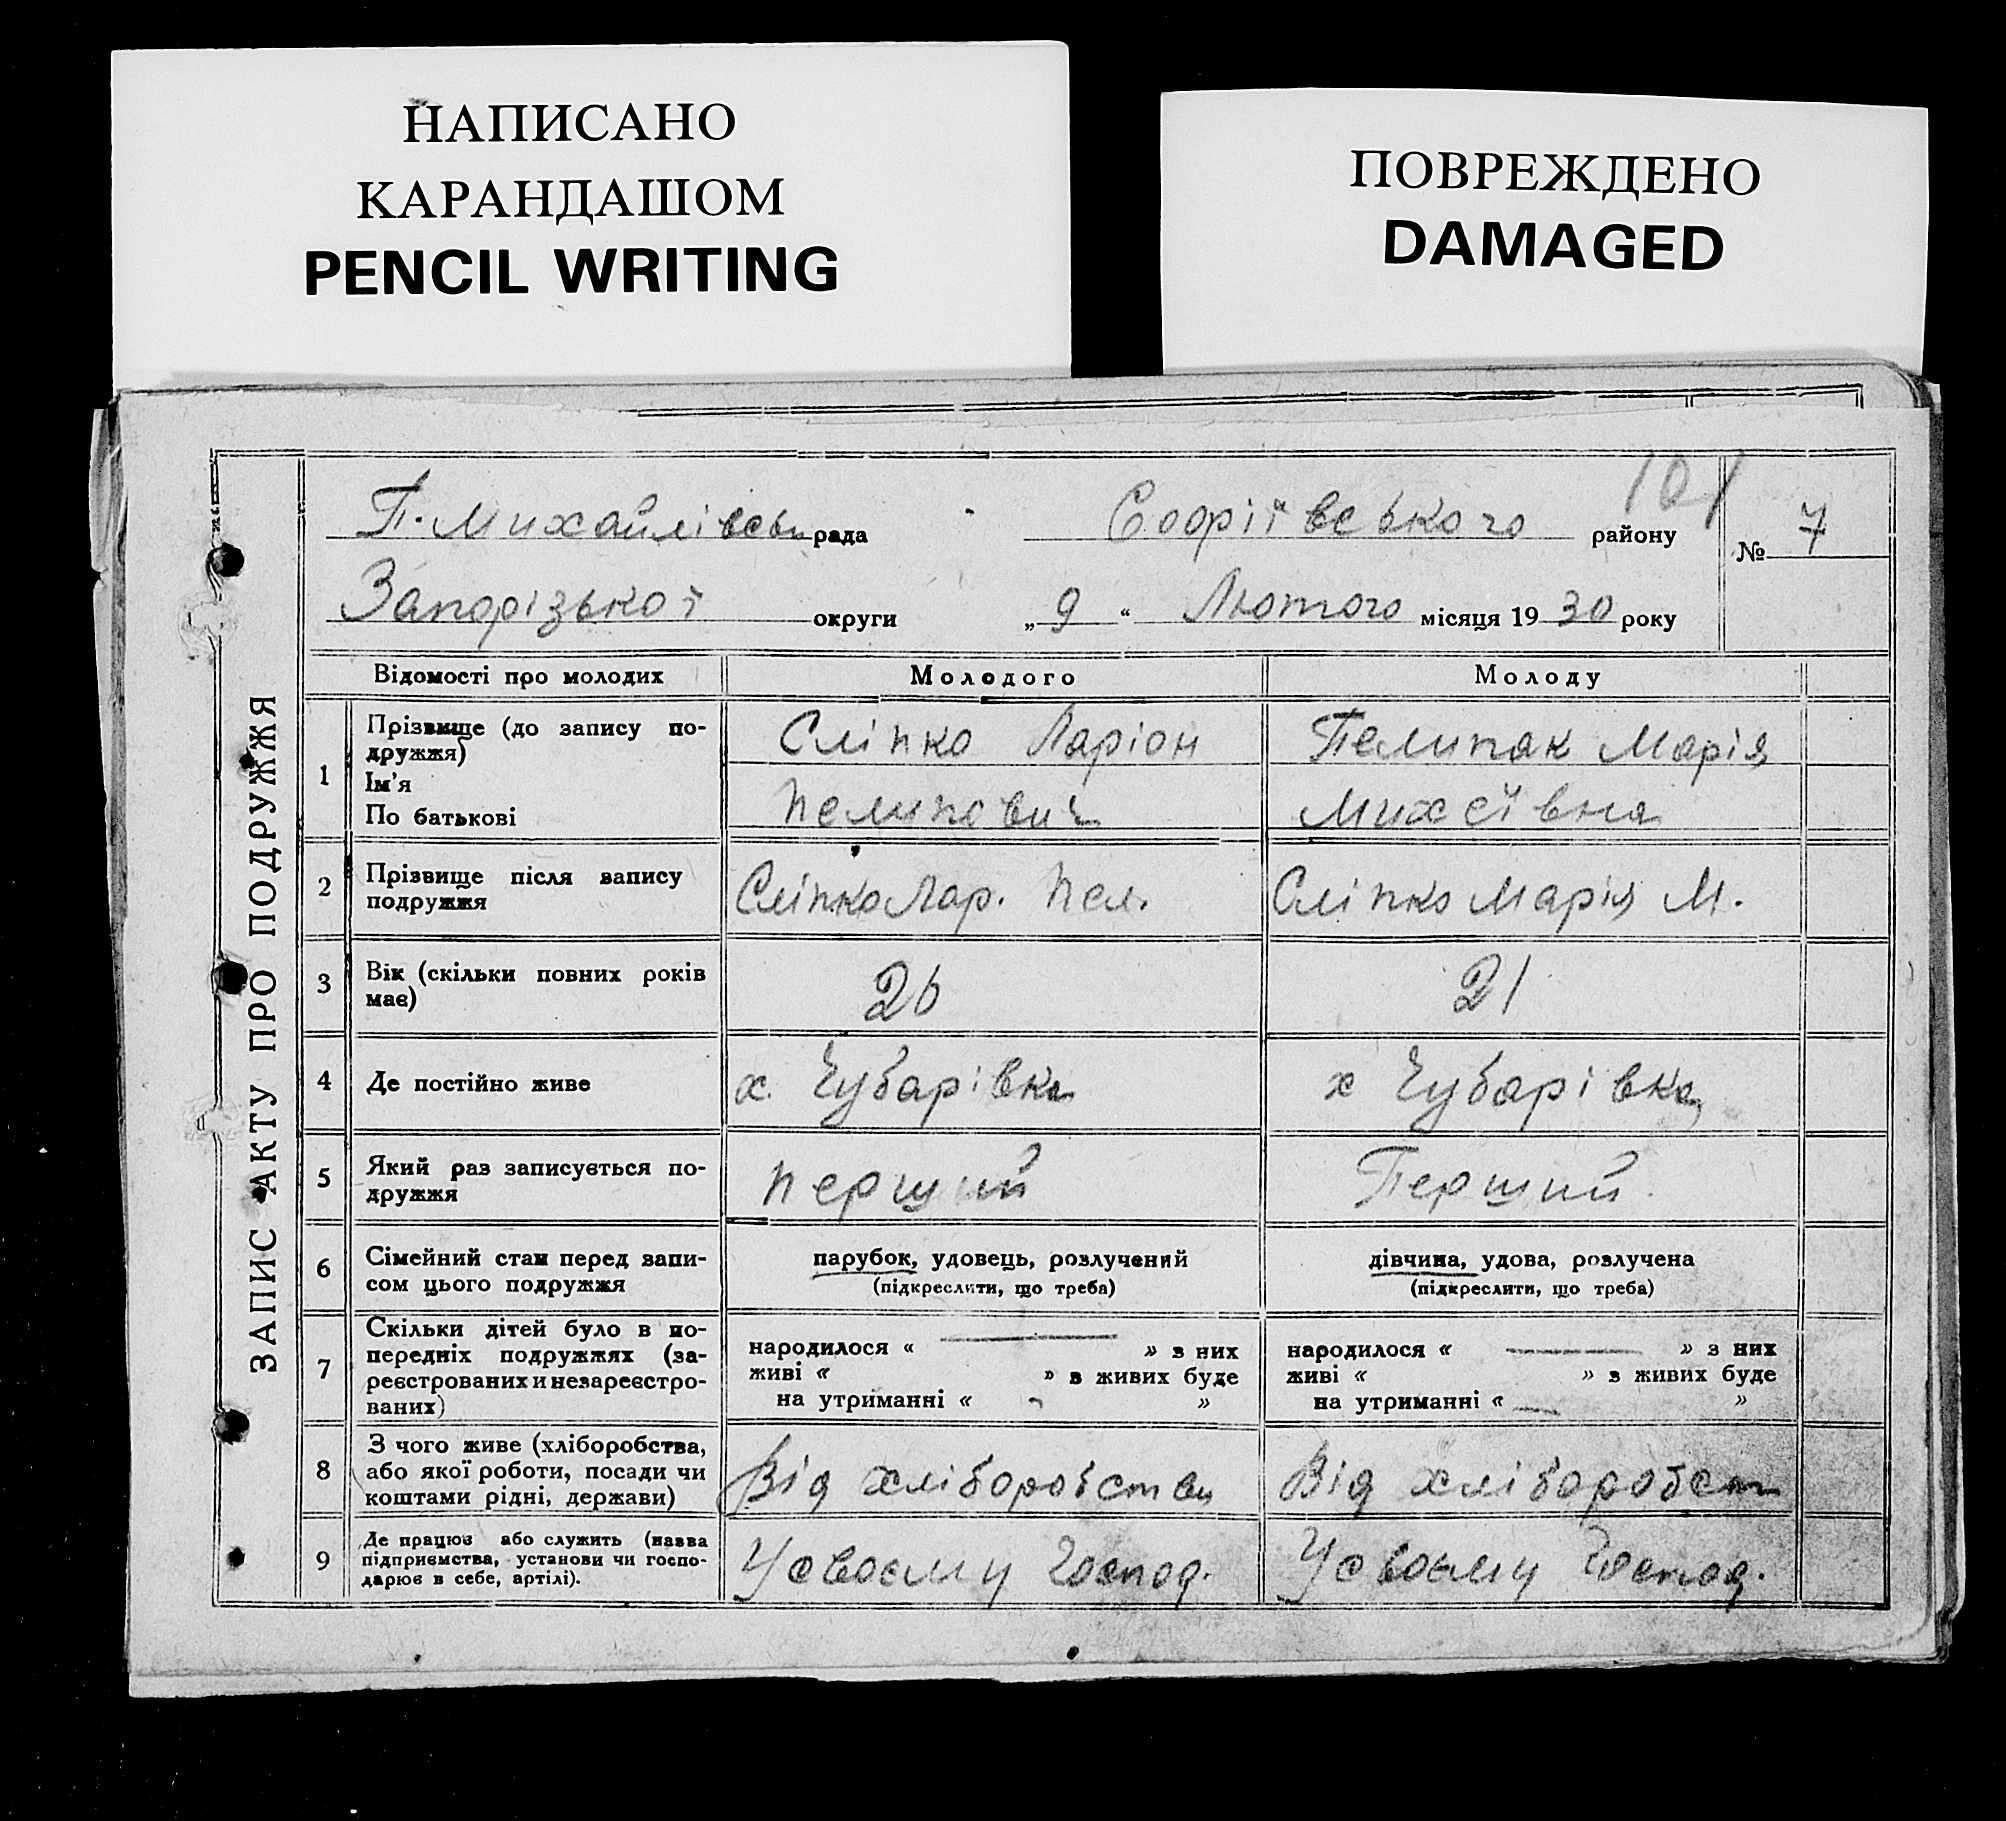 НАПИСАНО
КАРАНДАШОМ
PENCIL WRITING
ПОВРЕЖДЕНО
DAMAGED
ЗАПИС АКТУ ПРО ПОДРУЖЖЯ
101
П. Михайлівськ рада Софіївського району № 7
Запорізької округи „ 9 “ Лютого місяця 19 30 року
Відомості про молодих Молодого Молоду
1 Прізвище (до запису по-
дружжя)
Ім'я
По батькові
Сліпко Ларіон
Пелипович
Пелипак Марія
Михеївна
2 Прізвище після запису
подружжя
Сліпко Лар. Пел.
Сліпко Марія М.
3 Вік (скільки повних років
має)
26
21
4 Де постійно живе х. Чубарівка х Чубарівка
5 Який раз записується по-
дружжя
Перший
Перший
6 Сімейний стан перед запи-
сом цього подружжя
парубок, удовець, розлучений
(підкреслити, що треба)
дівчина, удова, розлучена
(підкреслити, що треба)
7 Скільки дітей було в по-
передніх подружжях (за-
реєстрованих и незареєстро-
ваних)
народилося « — » з них
живі « » в живих буде
на утриманні « - »
народилося « — » з них
живі « » в живих буде
на утриманні « — »
8 З чого живе (хліборобства,
або якої роботи, посади чи
коштами рідні, держави)
Від хліборобства
Від хліборобст
9 Де працює або служить (назва
підприємства, установи чи госпо-
дарює в себе, артілі).
У своєму Господ.
У своєму Господ.